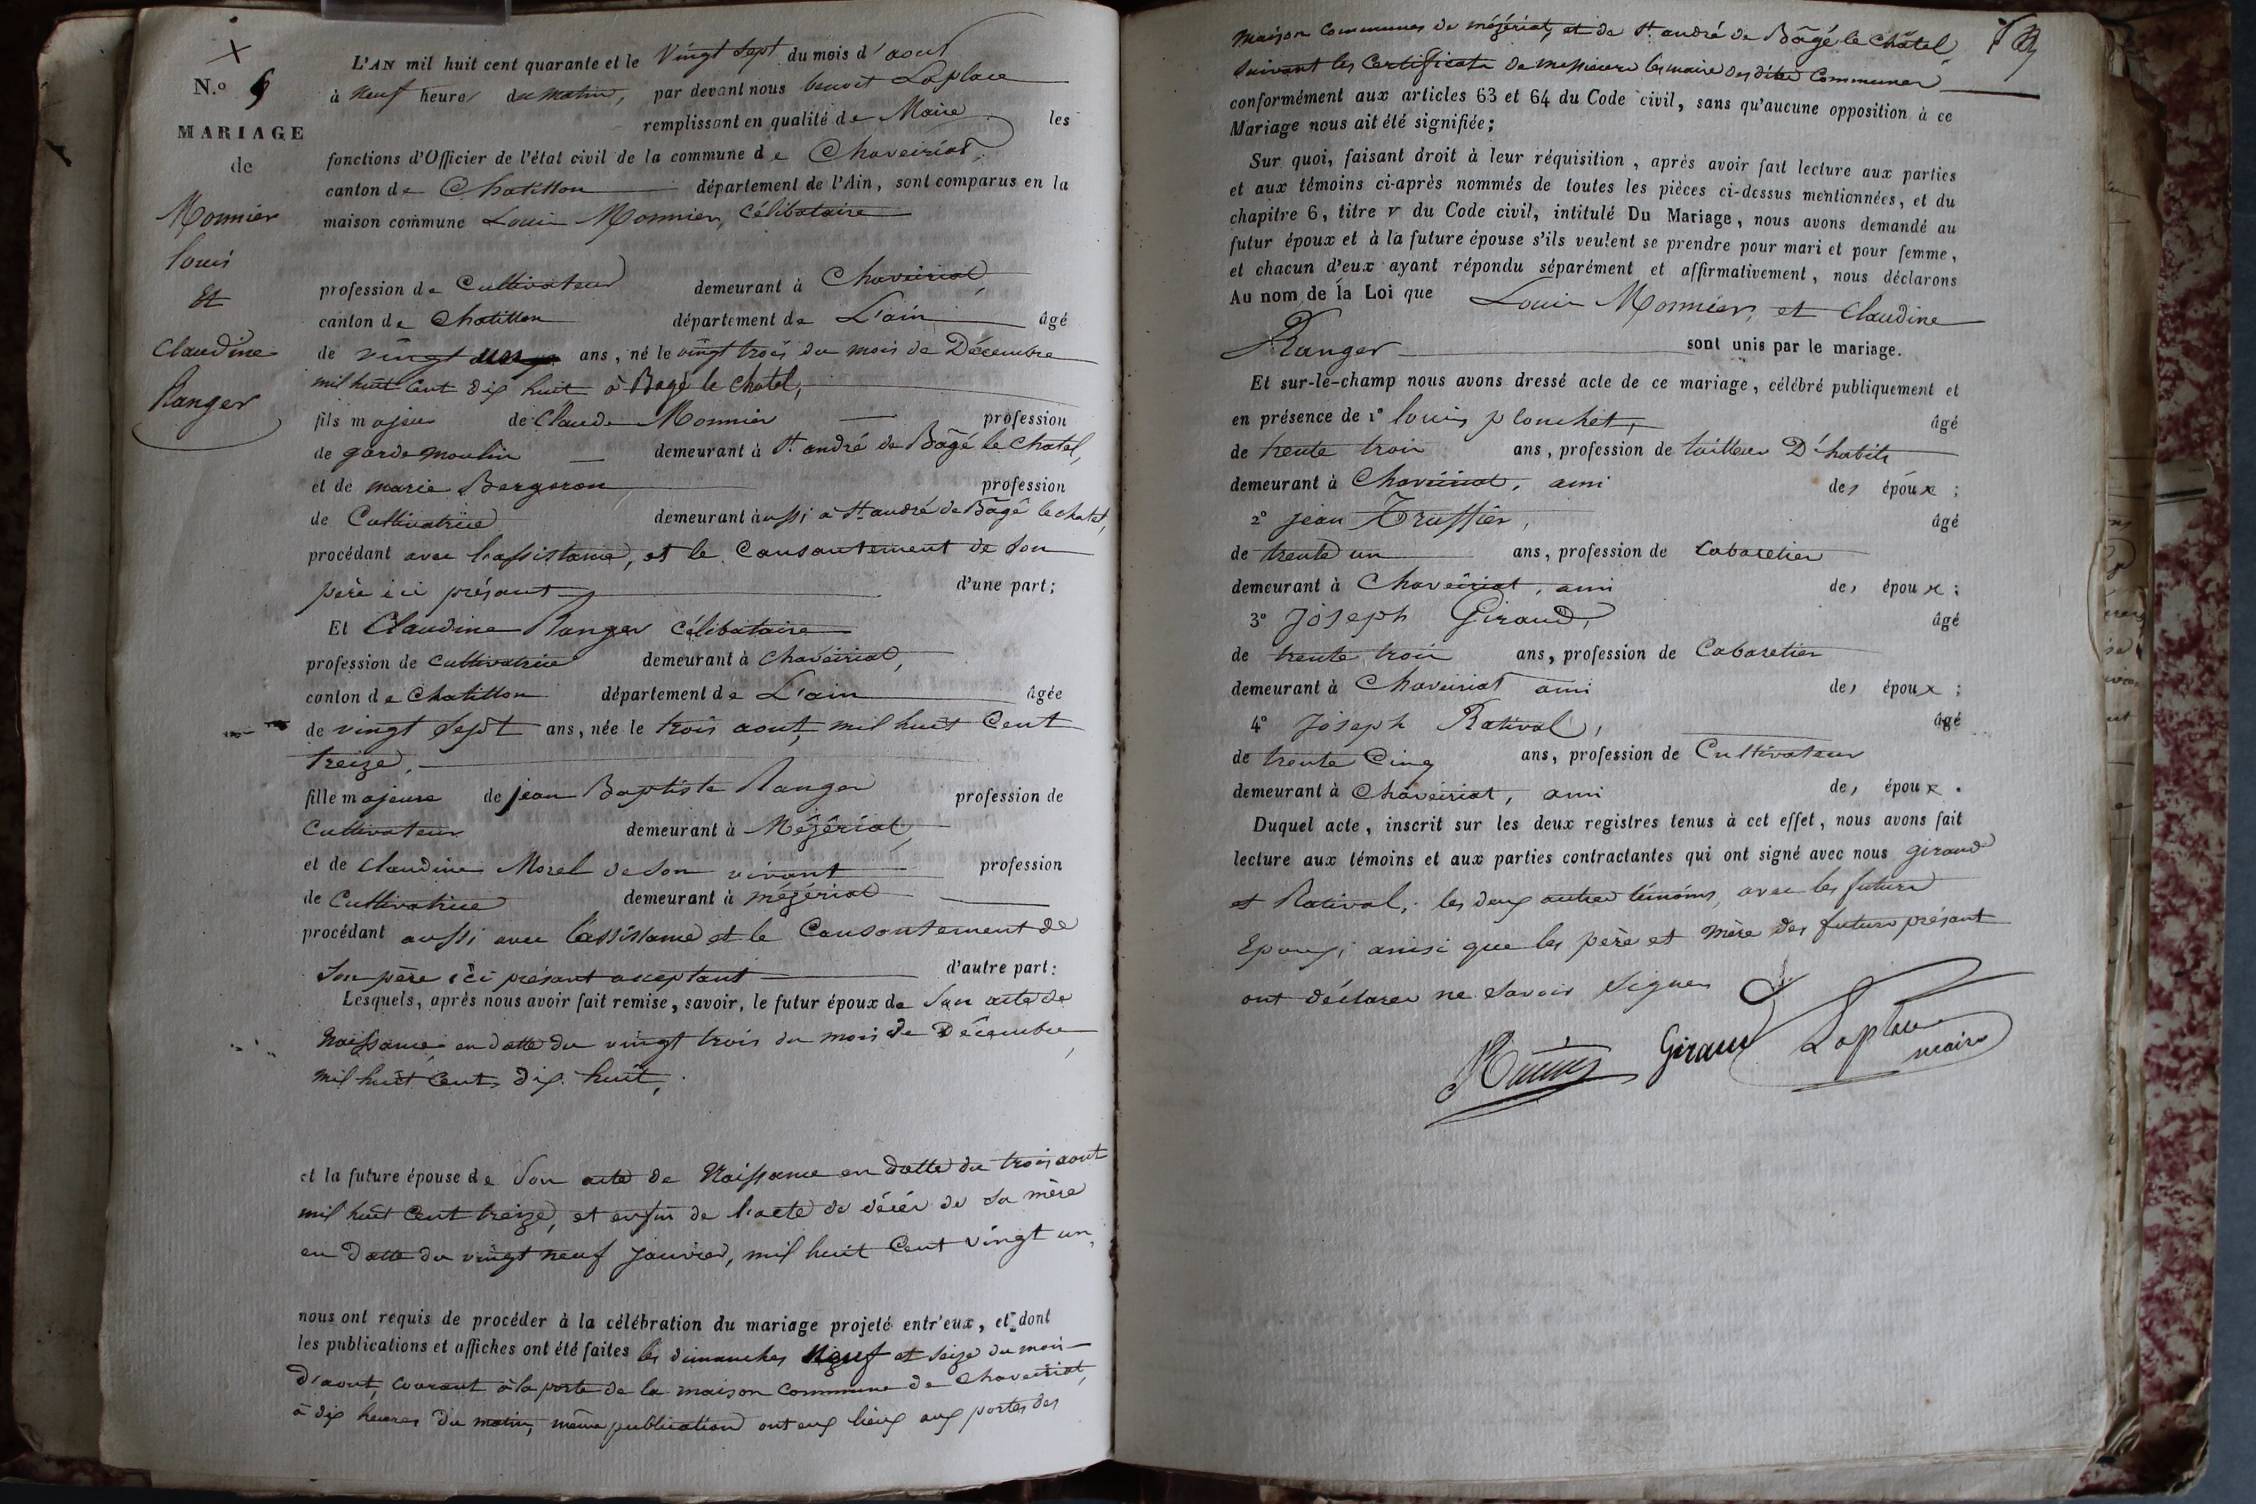 N.o 9
MARIAGE
de
Monnier
louis
Et
Claudine
Ranger
L'AN mil huit cent quarante et le Vingt Sept du mois d'aout
à Neuf heures du matin, par devant nous benoit Laplace
remplissant en qualité de Maire les
fonctions d'Officier de l'état civil de la commune de Chaveiriat,
canton de Chatillon département de l'Ain, sont comparus en la
maison commune Louis Monnier, Célibataire
profession de Cultivateur demeurant à Chaveiriat,
canton de Chatillon département de L'ain âgé
de vingt un ans, né le vingt trois du mois de Décembre
mil huit Cent dix huit à Bagé le chatel,
fils majeur de Claude Monnier profession
de garde moulin demeurant à St. andré de Bâgé le Chatel,
et de marie Bergeron profession
de Cultivatrice demeurant aussi à St andré de Bâgé le chatel,
procédant avec l'assistance, et le Consantement de Son
père ici présant d'une part;
Et Claudine Ranger Célibataire
profession de Cultivatrice demeurant à Chaveiriat,
canton de Chatillon département de L'ain âgée
de vingt Sept ans, née le trois aout, mil huit Cent
treize,
fille majeure de jean Baptiste Ranger profession de
Cultivateur demeurant à Mézériat,
et de Claudine Morel de son vivant profession
de Cultivatrice demeurant à mézériat
procédant aussi avec l'assistance et le Consantement de
Son père ici présant acceptant d'autre part:
Lesquels, après nous avoir fait remise, savoir, le futur époux de Son acte de
Naissance en datte du vingt trois du mois de Décembre
mil huit Cent dix huit,
et la future épouse de Son acte de Naissance en datte du trois aout
mil huit Cent treize, et enfin de l'acte de décés de Sa mère
en datte du vingt neuf Janvier, mil huit Cent vingt un,
nous ont requis de procéder à la célébration du mariage projeté entr'eux, et dont
les publications et affiches ont été faites les dimanches Neuf et Seize du mois
D'aout, courant à la porte de la maison Commune de Chaveiriat,
à dix heures du matin, même publication ont eux lieux aux portes des
maison Communes de mézériat, et de St. andré de Bâgé le Châtel
Suivant les Certificats de messieurs les maire des dites Communes
conformément aux articles 63 et 64 du Code civil, sans qu'aucune opposition à ce
Mariage nous ait été signifiée;
Sur quoi, faisant droit à leur réquisition, après avoir fait lecture aux parties
et aux témoins ci-après nommés de toutes les pièces ci-dessus mentionnées, et du
chapitre 6, titre v du Code civil, intitulé Du Mariage, nous avons demandé au
futur époux et à la future épouse s'ils veulent se prendre pour mari et pour femme,
et chacun d'eux ayant répondu séparément et affirmativement, nous déclarons
Au nom de la Loi que Louis Monnier, et Claudine
Ranger sont unis par le mariage.
Et sur-le-champ nous avons dressé acte de ce mariage, célébré publiquement et
en présence de 1° louis plouchet, âgé
de trente trois ans, profession de tailleur D'habits
demeurant à Chaveiriat, ami des époux;
2° jean Truffier, âgé
de trente un ans, profession de Cabaretier
demeurant à Chaveiriat, ami des époux;
3° Joseph Giraud, âgé
de trente trois ans, profession de Cabaretier
demeurant à Chaveiriat ami des époux;
4° Joseph Rativol, âgé
de trente Cinq ans, profession de Cultivateur
demeurant à Chaveiriat, ami des époux.
Duquel acte, inscrit sur les deux registres tenus à cet effet, nous avons fait
lecture aux témoins et aux parties contractantes qui ont signé avec nous giraud
et Rativol, les deux autres témoins, avec les futurs
Epoux, ainsi que les père et mère des futurs présant
ont déclarer ne Savoir Signer
Giraud Laplace
maire